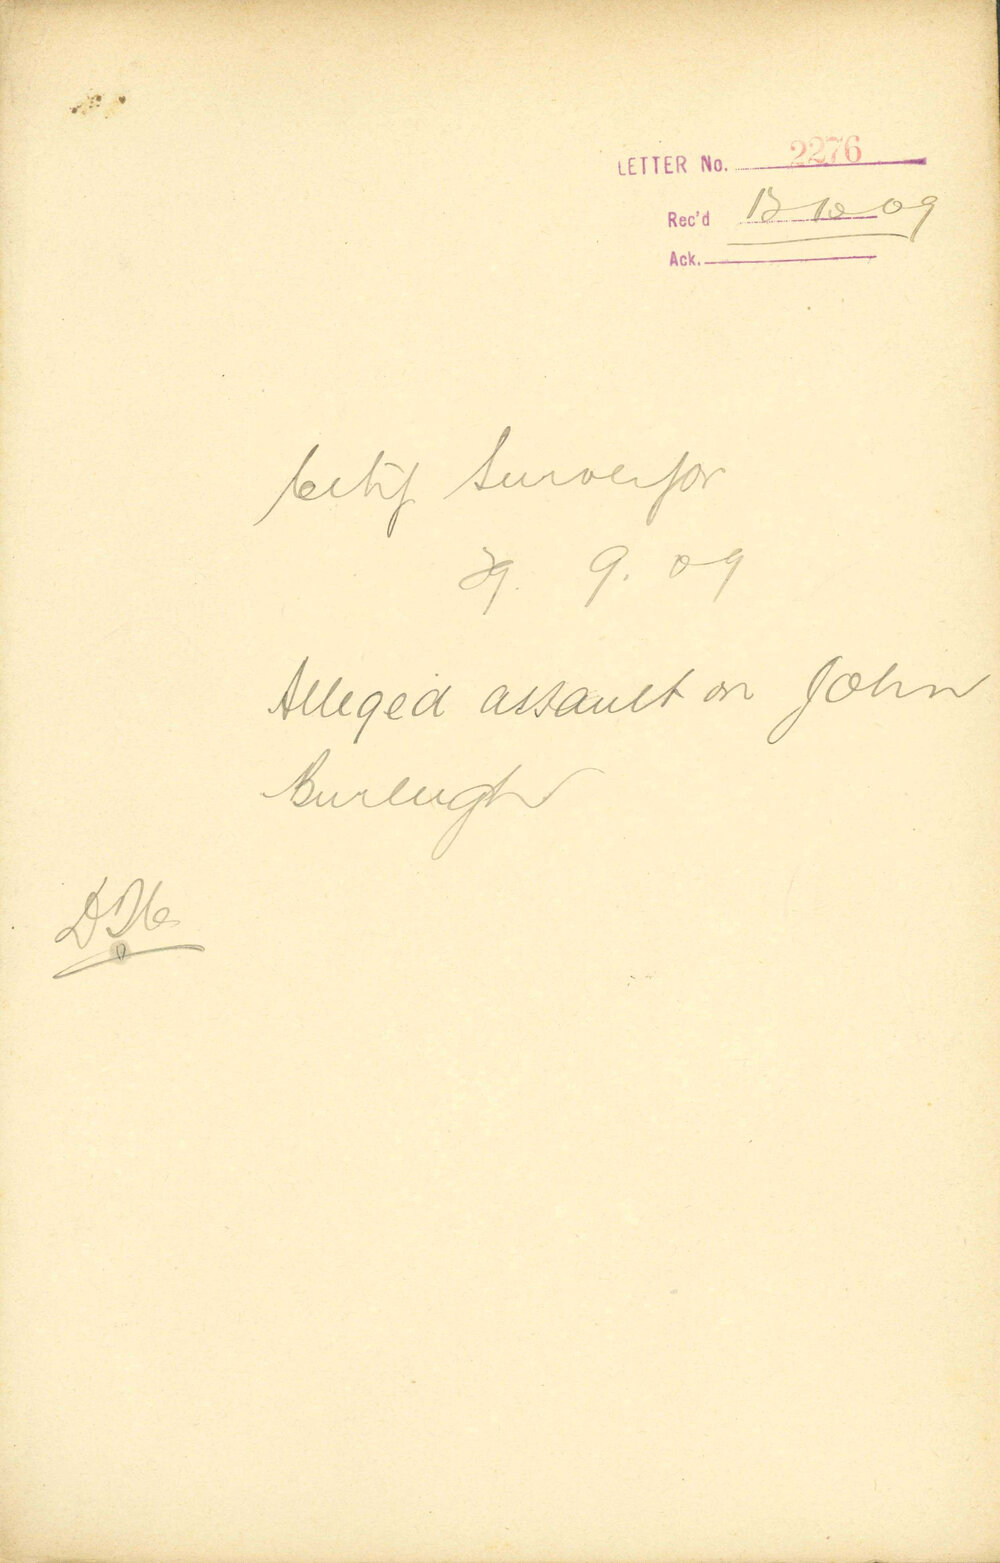 LETTER No. 2276
Rec'd 13 10 09
Ack.
City Surveyor
29. 9. 09
Alleged assault on John
Burleigh